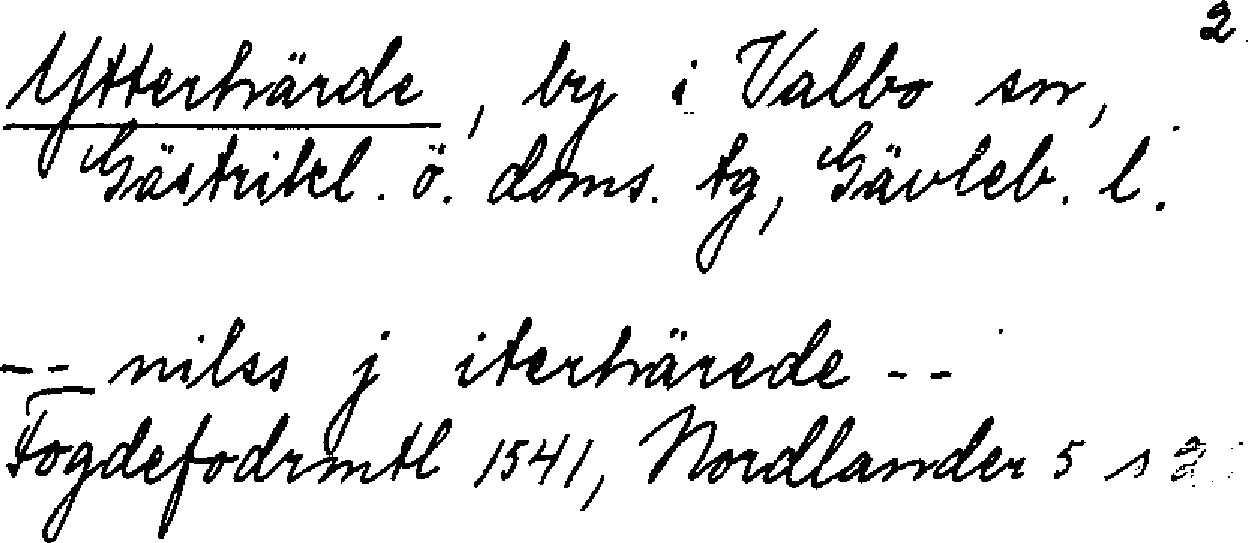 2
Ytterhärde, by i Valbo sn,
Gästrikl. ö. doms. tg, Gävleb. l.
-- nilss j iterhärede --
Fogdefodrmtl 1541, Nordlander 5 s 2